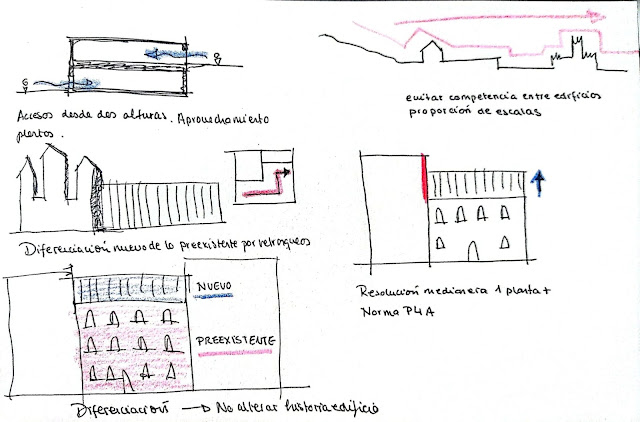 Accesos desde dos alturas. Aprovechamiento
plantas.
evitar competencia entre edificios
proporción de escalas
Diferenciación nuevo de lo preexistente por retranqueos
Resolución medianera 1 planta +
Norma P4A
NUEVO
PREEXISTENTE
Diferenciación → No alterar historia edificio